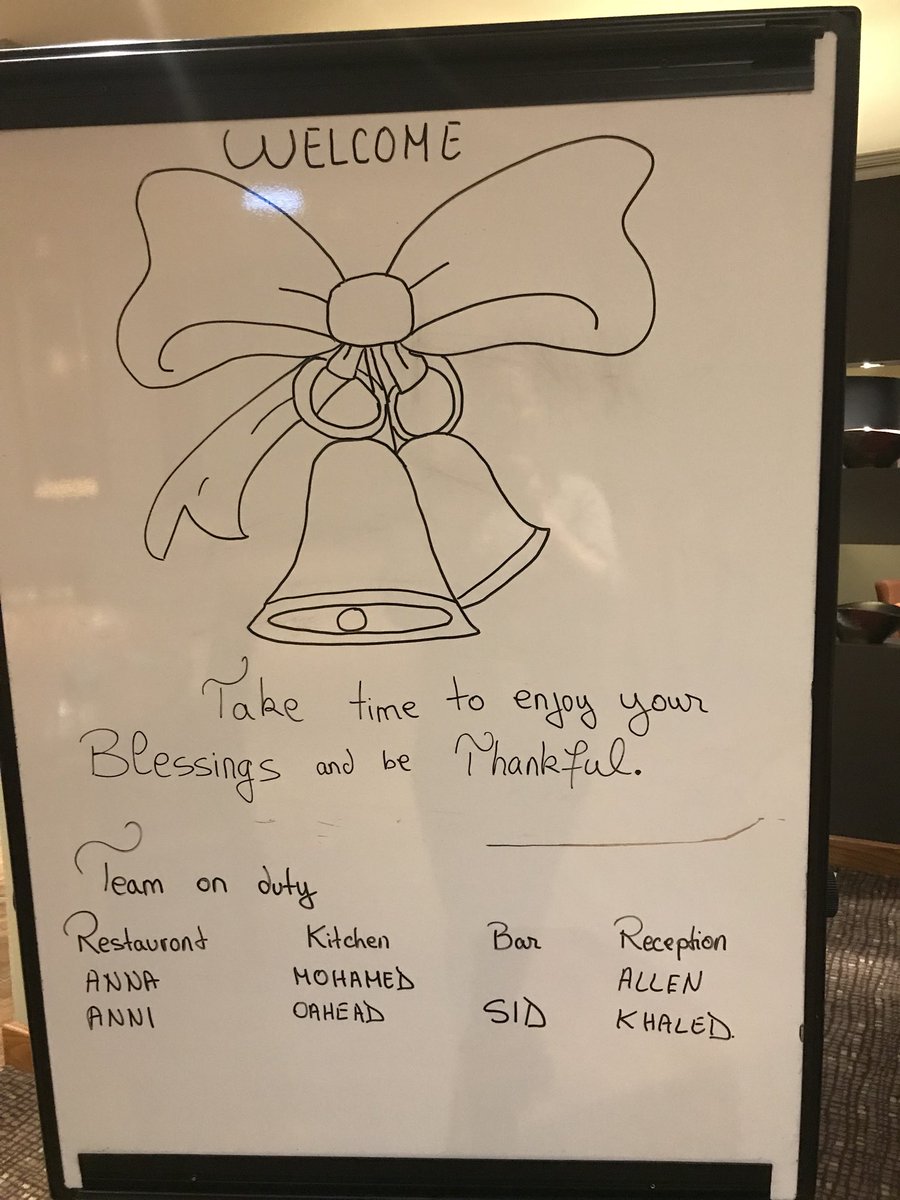 WELCOME
Take time to enjoy your
Blessings and be Thankful.
Team on duty
Restaurant Kitchen Bar Reception
ANNA MOHAMED ALLEN
ANNI OAHEAD SID KHALED.